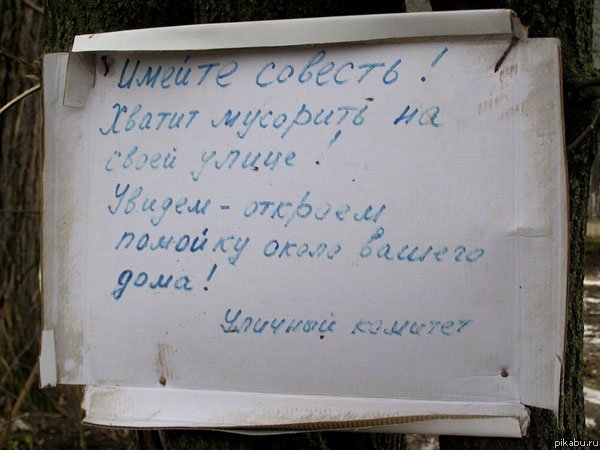 Имейте совесть!
Хватит мусорить на
своей улице!
Увидем - откроем
помойку около вашего
дома!
Уличный комитет
pikabu.ru